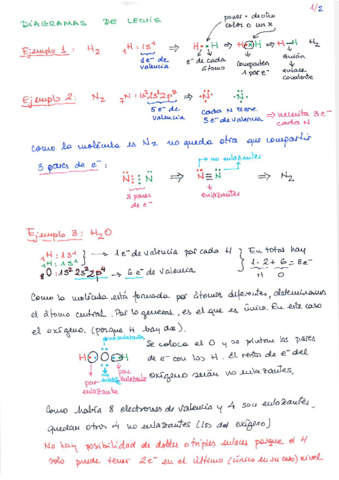 1/2
DIAGRAMAS DE LEWIS
poner e⁻ de otro color o un x
Ejemplo 1: H₂ ₁H: 1s¹ ⇒ H· ·H → H··H → H–H H₂
1e⁻ de valencia
e⁻ de cada átomo
comparten 1 par e⁻
guión enlace covalente
Ejemplo 2: N₂ ₇N: 1s²2s²2p³ ⇒ ·N· ·N·
5e⁻ de valencia
cada N tiene 5e⁻ de valencia ⇒ necesita 3e⁻ cada N
como la molécula es N₂ no queda otra que compartir
3 pares de e⁻:
no enlazantes
N⋮⋮N ⇒ N≡N ⇒ N₂
3 pares de e⁻
enlazantes
Ejemplo 3: H₂O
₁H: 1s¹
₁H: 1s¹ → 1e⁻ de valencia por cada H
₈O: 1s²2s²2p⁴ → 6e⁻ de valencia
En total hay
1·2 + 6 = 8e⁻
H O
Como la molécula está formada por átomos diferentes, determinamos
el átomo central. Por lo general, es el que es único. En este caso
el oxígeno. (porque H hay dos).
no enlazante
Se coloca el O y se pintan los pares
H O H de e⁻ con los H. El resto de e⁻ del
oxígeno serán no enlazantes.
par enlazante
no enlazante
par enlazante
Como había 8 electrones de valencia y 4 son enlazantes,
quedan otros 4 no enlazantes (los del oxígeno)
No hay posibilidad de dobles o triples enlaces porque el H
solo puede tener 2e⁻ en el último (único en su caso) nivel